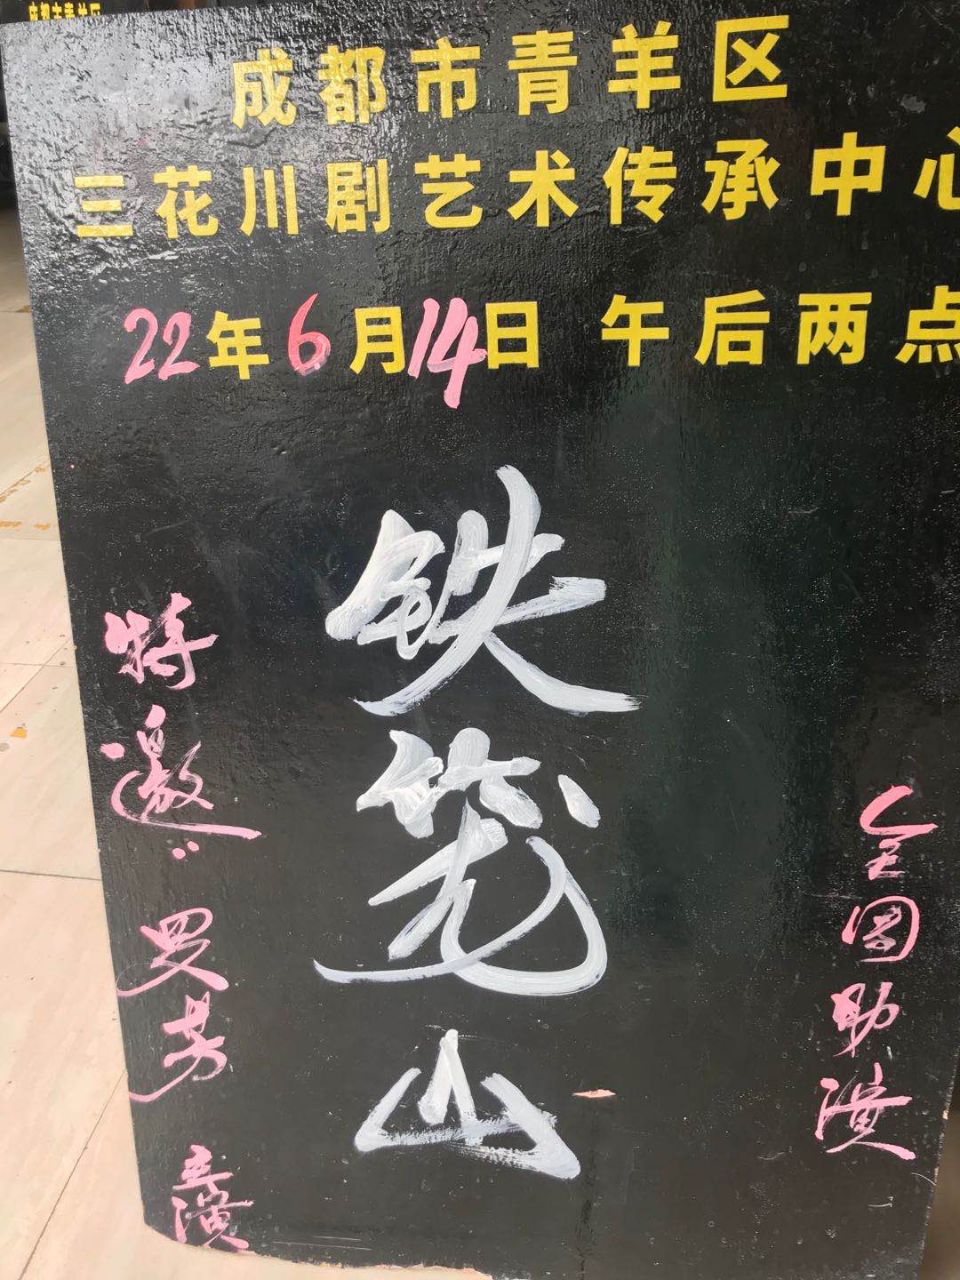 成都市青羊区
三花川剧艺术传承中心
22年6月14日 午后两点
铁笼山
特邀:罗芳
主演
全团助演